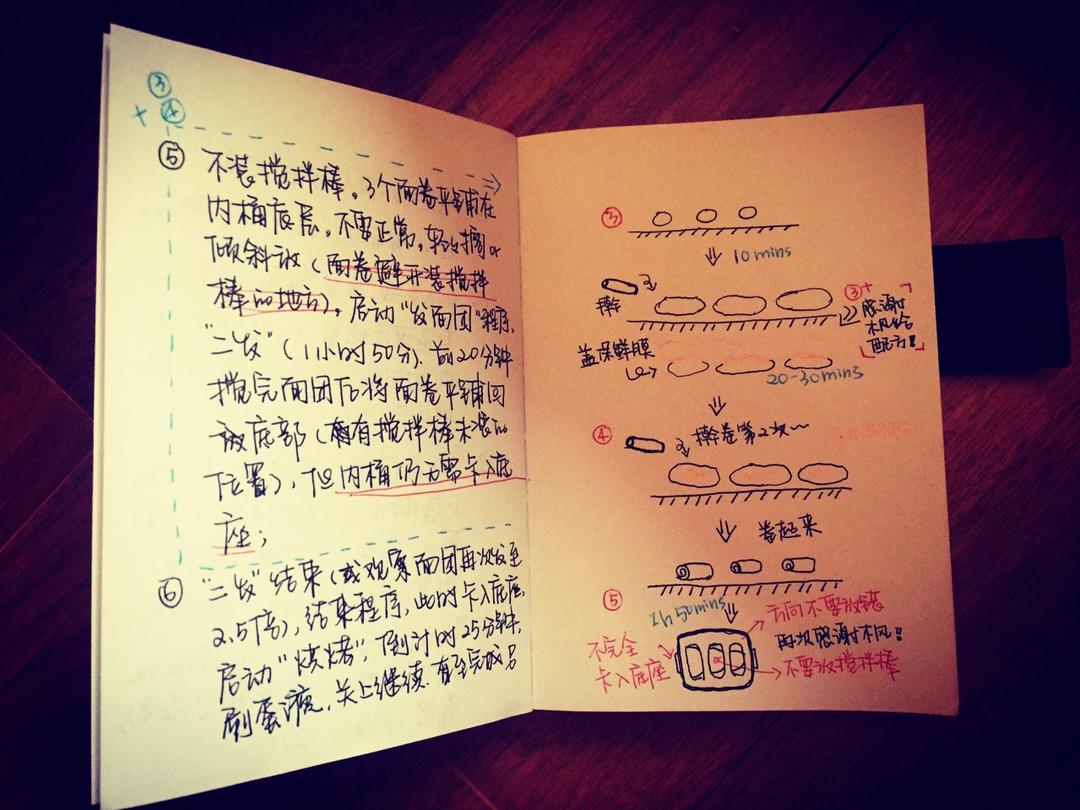 ③
+ ④
⑤ 不装搅拌棒。3个面卷平铺在
内桶底层，不要正常，轻以摘or
倾斜放（面卷避开装搅拌
棒的地方）。启动“发面团”程序，
“二发”（1小时50分）前20分钟
搅完面团后将面卷平铺回
放底部（有搅拌棒未装的
位置），但内桶仍无需卡入底
座；
⑥ “二发”结束（或观察面团再次发至
2.5倍），结束程序，此时卡入底座，
启动“烧烤”，倒计时25分钟末，
刷蛋液，关上继续，直至完成。
③
10 mins
擀
③+
感谢
木风给
配方！
盖保鲜膜
20-30mins
④ 擀卷第2次～
卷起来
⑤
1h 50mins
方向不要放错
不完全
卡入底座
再次感谢木风！
不要放搅拌棒